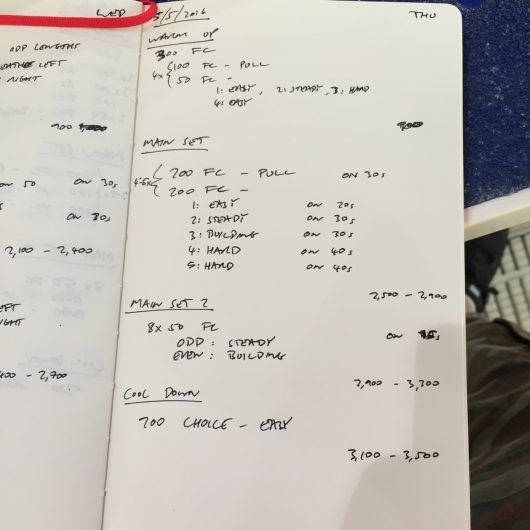 WED
ODD LENGTHS
EATHE LEFT
RIGHT
900
ON 50 ON 30s
ON 30s
2,100 - 2,400
LEFT
RIGHT
400 - 2,700
5/5/2016 THU
WARM UP
300 FC
4x { 100 FC - PULL
50 FC -
1: EASY, 2: STEADY, 3: HARD
4: EASY
MAIN SET
{ 200 FC - PULL ON 30s
200 FC -
1: EASY ON 20s
2: STEADY ON 30s
3: BUILDING ON 30s
4: HARD ON 40s
5: HARD ON 40s
2,500 - 2,900
MAIN SET 2
8x 50 FC
ODD: STEADY ON 15s
EVEN: BUILDING
2,900 - 3,300
COOL DOWN
200 CHOICE - EASY
3,100 - 3,500